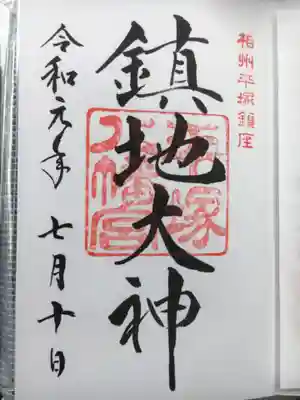 相州平塚鎮座
鎮地大神
平塚八幡宮
令和元年 七月十日